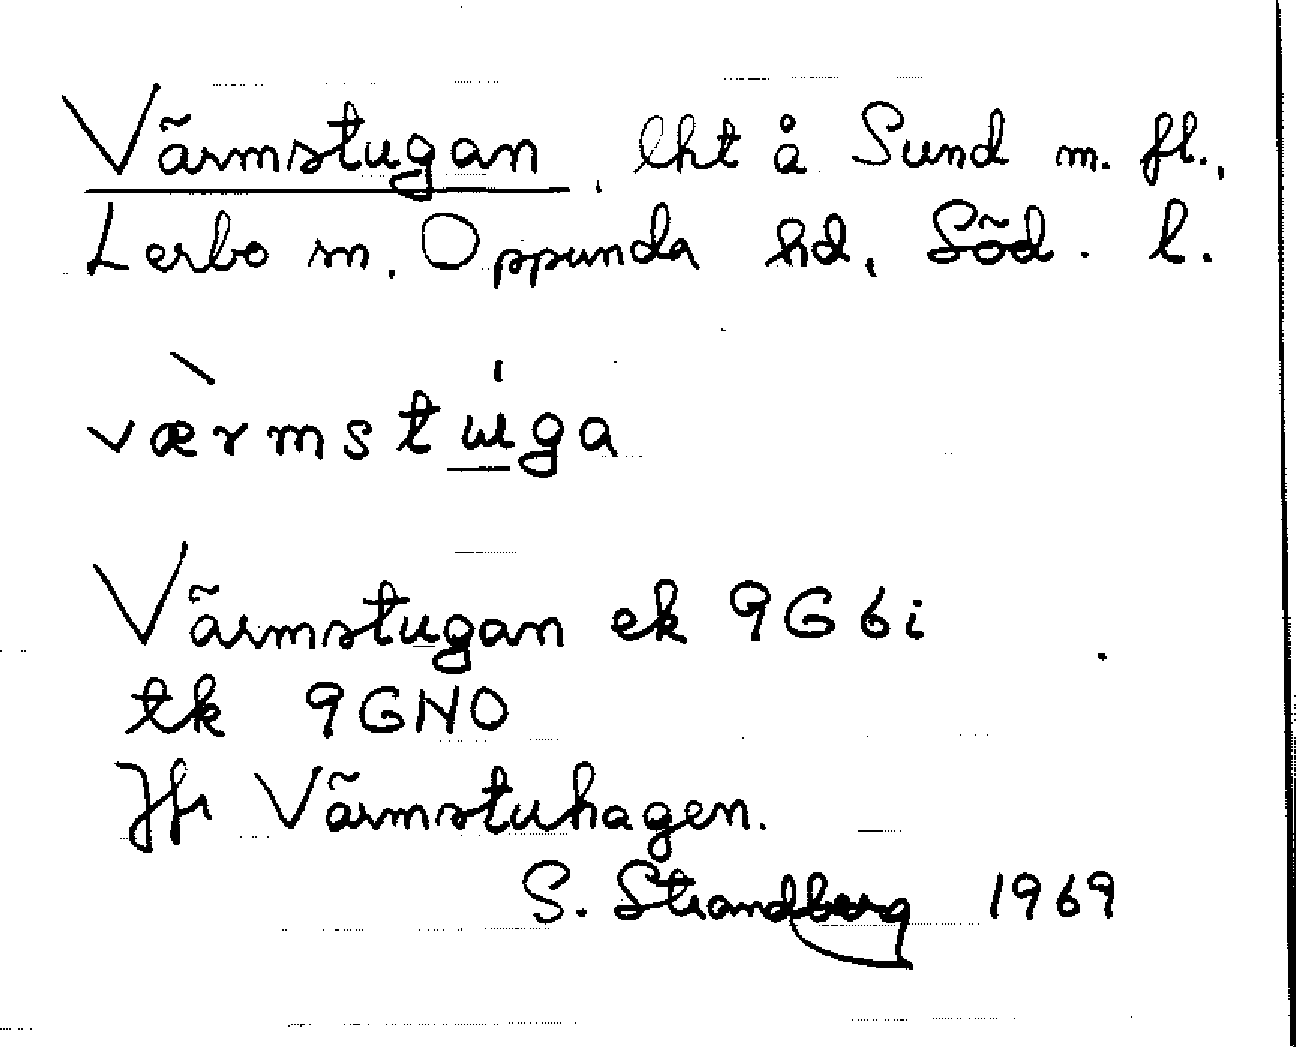 Värmstugan, lht å Sund m. fl.,
Lerbo sn, Oppunda hd, Söd. l.
værmstuga
Värmstugan ek 9G6i
tk 9GNO
Jfr Värmstuhagen.
S. Strandberg 1969